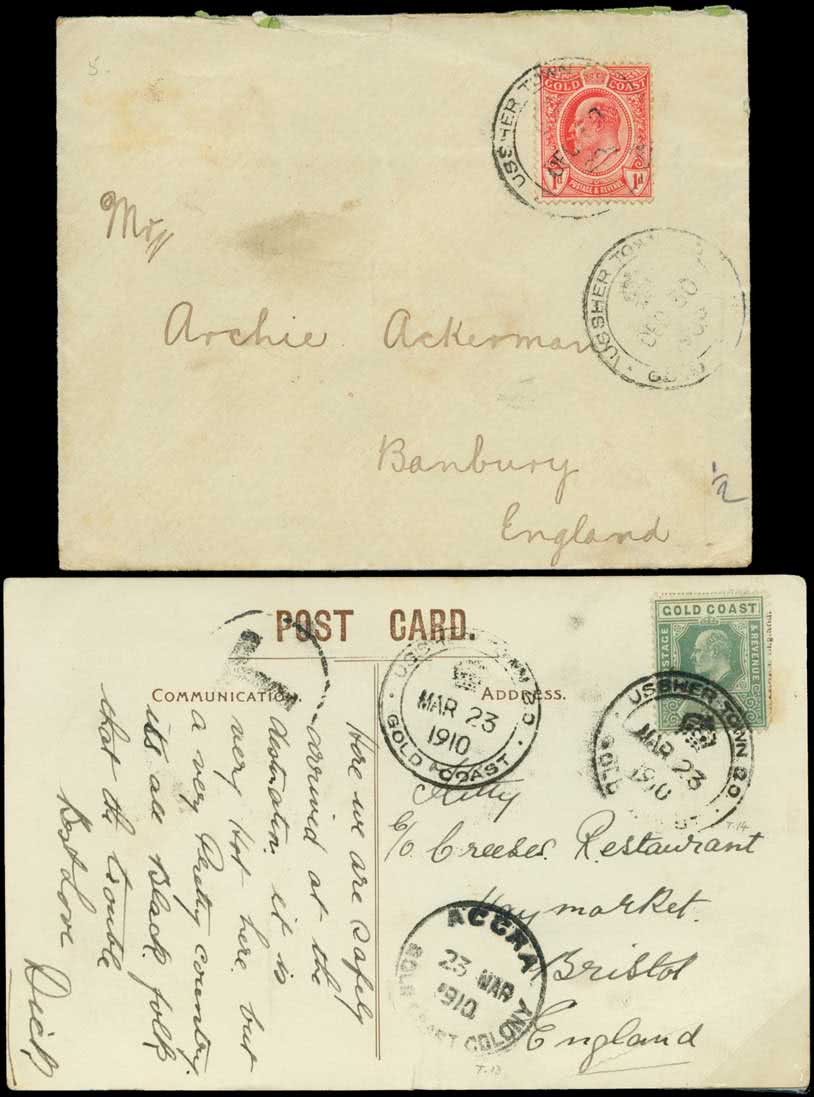 5.
USSHER TOWN
GOLD COAST
1d POSTAGE & REVENUE 1d
DEC 30
Miss
USSHER TOWN
DEC 30
GOLD
Archie Ackerman
Banbury
1/2
England
POST CARD.
COMMUNICATION.
ADDRESS.
T
Here we are safely
arrived at the
destination it is
very hot here but
a very Pretty country.
its all Black folk
that the trouble
Best Love
Dick
USSHER TOWN G.C.
MAR 23
1910
GOLD COAST
GOLD COAST
POSTAGE & REVENUE
USSHER TOWN G.C.
MAR 23
1910
GOLD
T-14
Kitty
C/o Creeber. Restaurant
Haymarket.
Bristol
England
ACCRA
23 MAR
1910
GOLD COAST COLONY
T-13